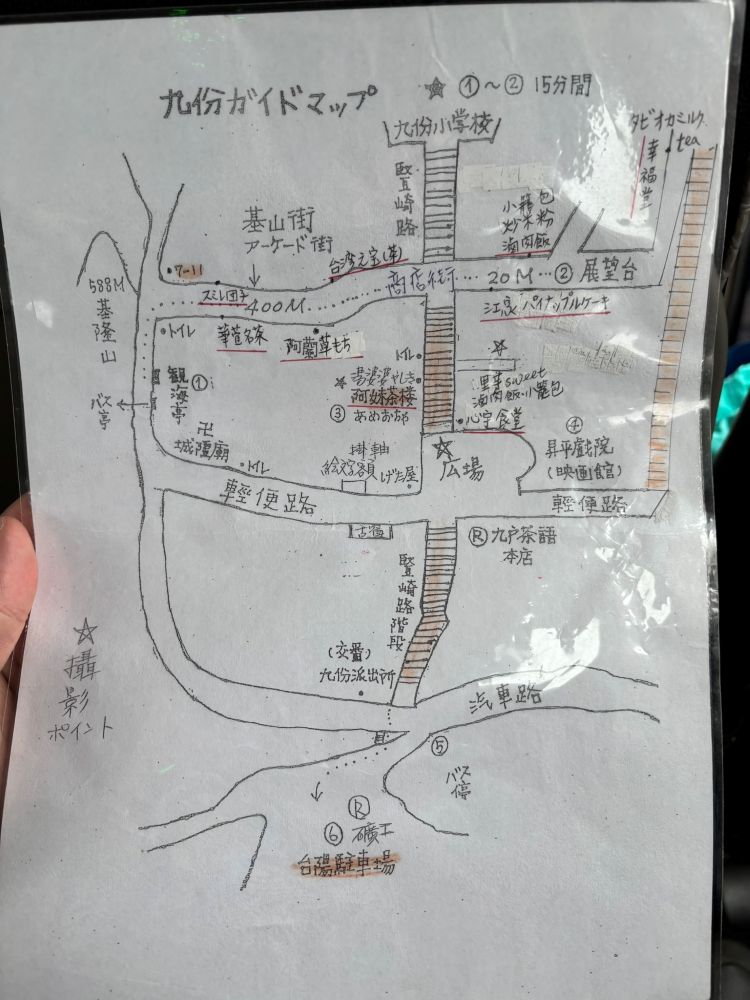 九份ガイドマップ
☆ ①～② 15分間
九份小学校
タピオカミルク
tea
幸福堂
竪崎路
小籠包
炒米粉
滷肉飯
基山街
アーケード街
台湾之宝(革)
7-11
商店街
20M
② 展望台
588M
基隆山
スミレ団子
400M
江宸パイナップルケーキ
トイレ
阿蘭草もち
トイレ
☆
観海亭
①
バス亭
湯婆婆やしき
☆ 阿妹茶楼
③ あめおちゃ
sweet
滷肉飯・小籠包
心宝食堂
④
昇平戯院
(映画館)
卍
城隍廟
トイレ
掛軸
げた屋
☆
広場
輕便路
輕便路
Ⓡ 九戸茶語
本店
竪崎路階段
(交番)
九份派出所
☆
攝影
ポイント
汽車路
⑤
バス停
Ⓡ
⑥ 礦工
台陽駐車場